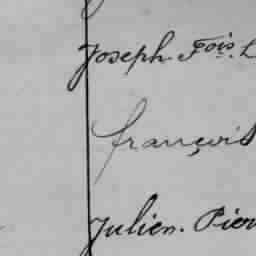 Joseph. Fois.
françois
Julien.